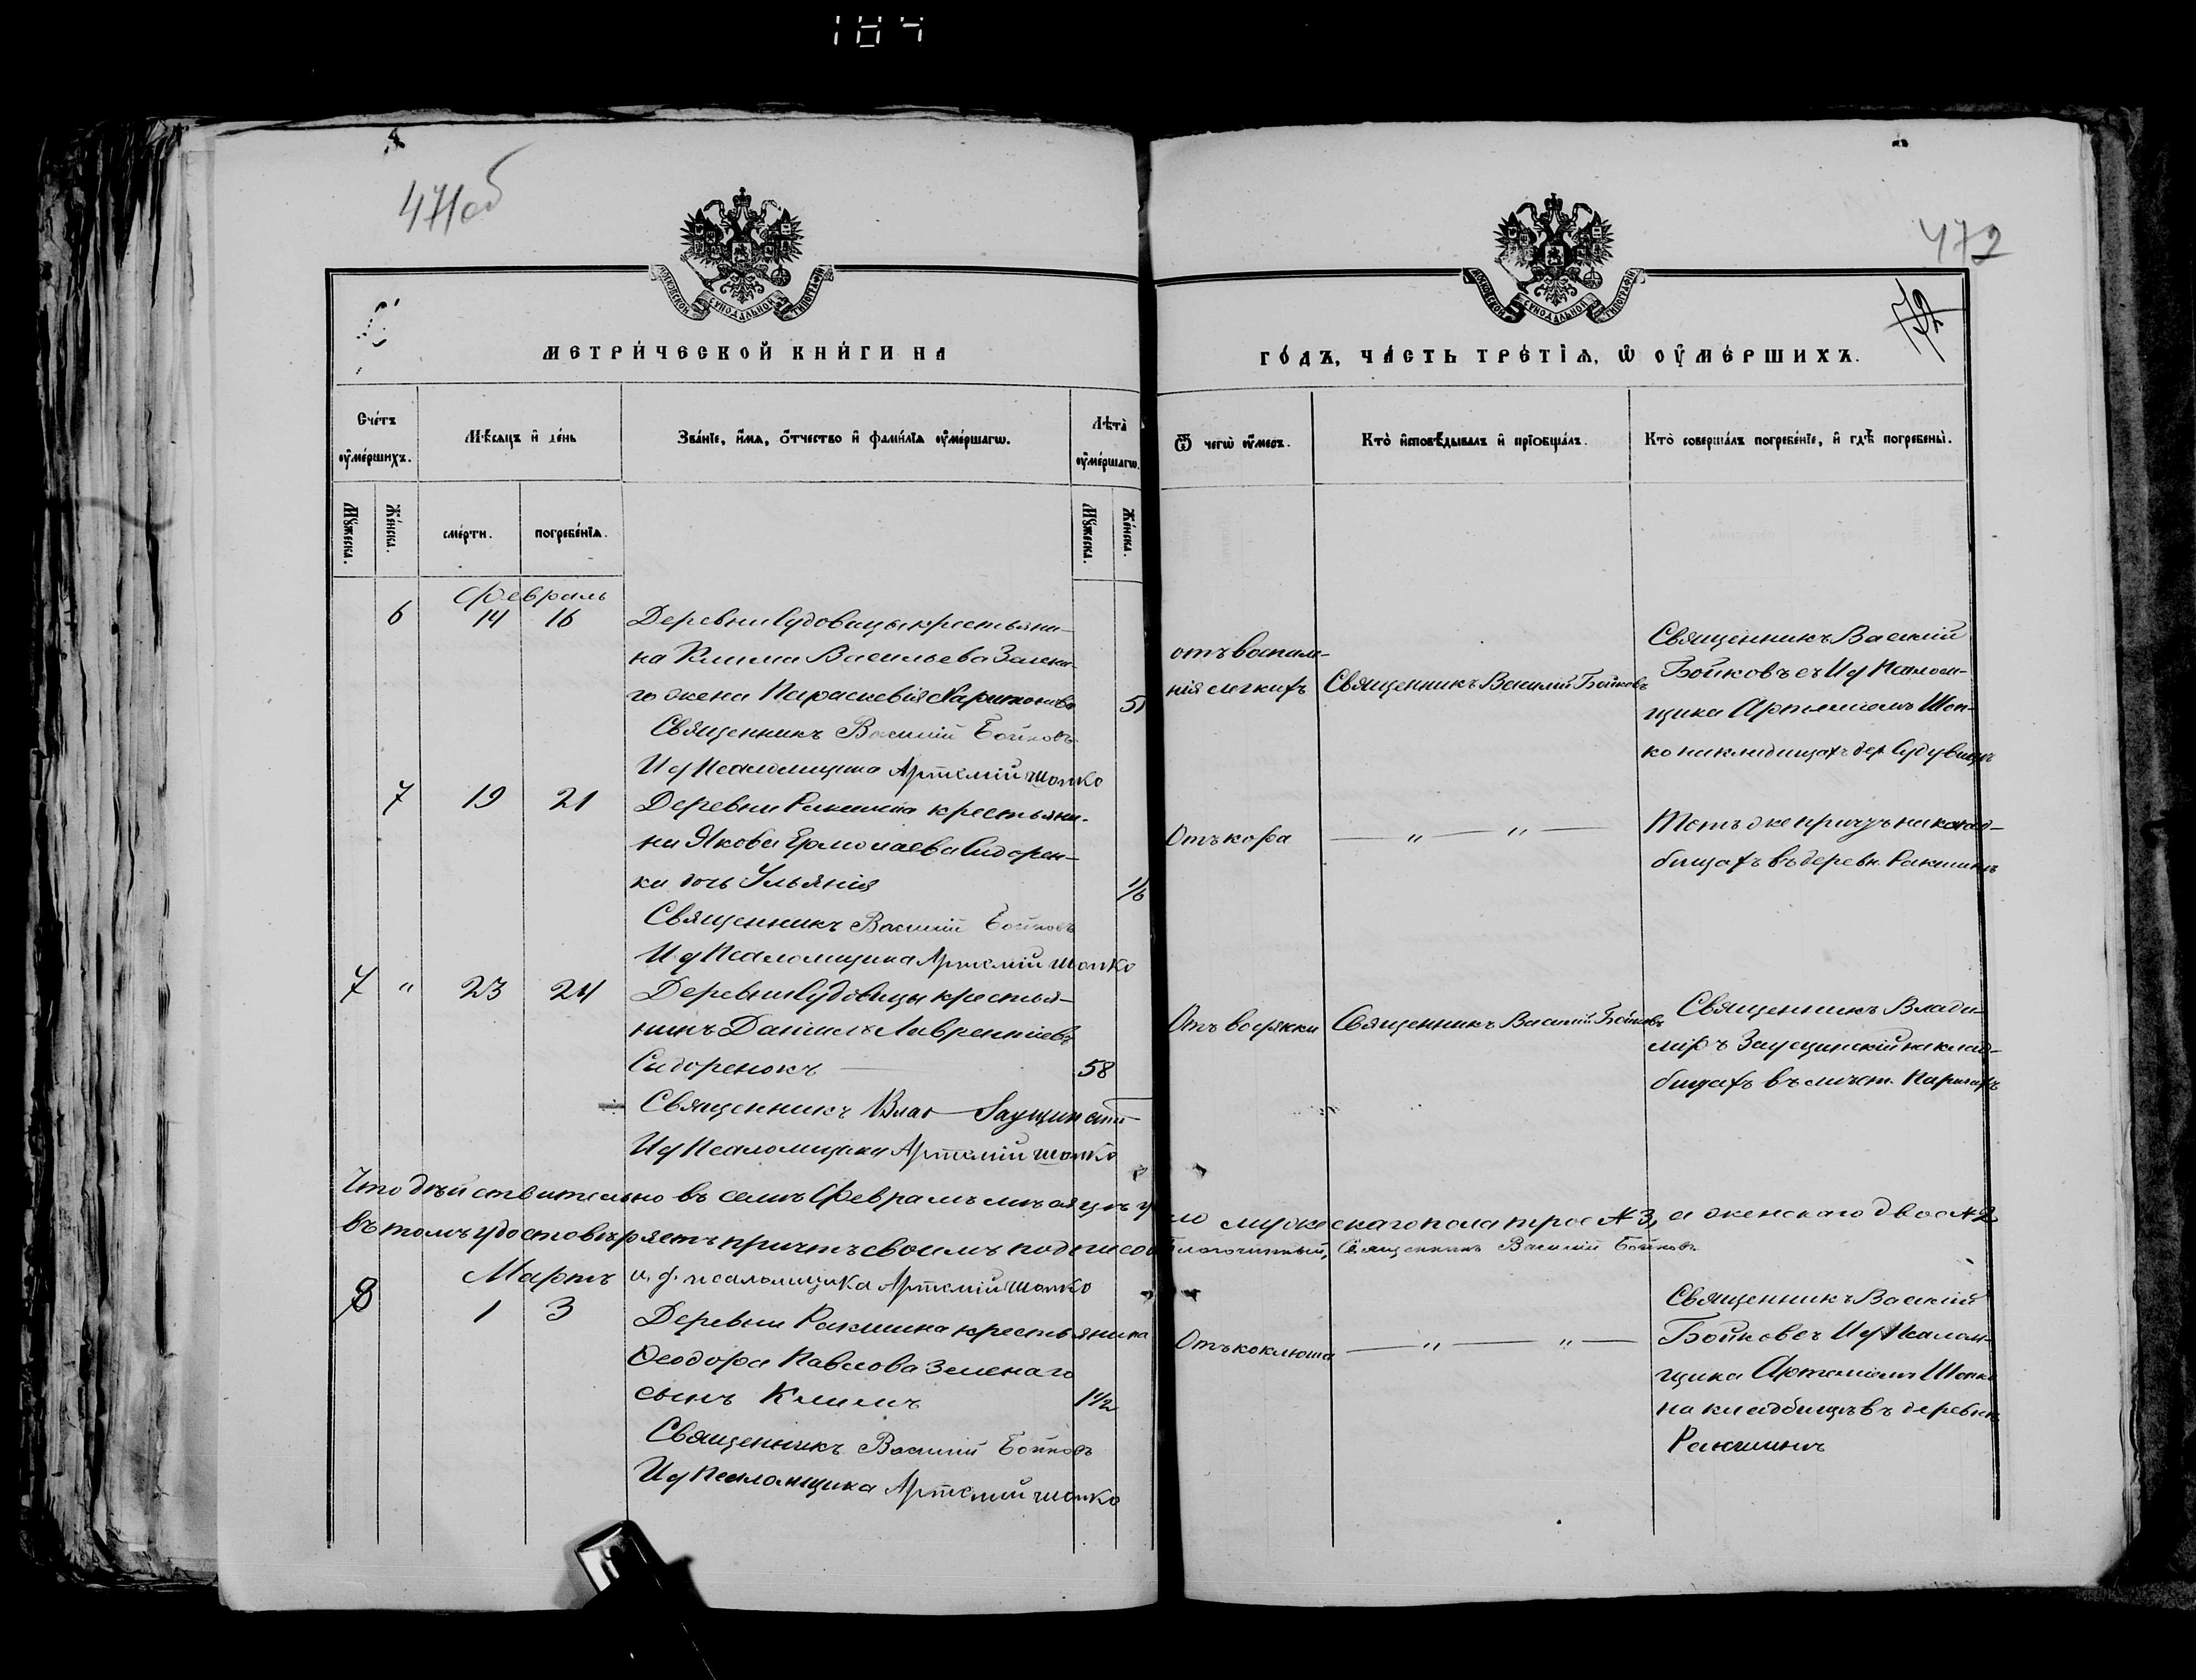 184
471об
472
72
МОСКОВСКОЙ СѴНОДАЛЬНОЙ ТИПОГРАФІИ
МОСКОВСКОЙ СѴНОДАЛЬНОЙ ТИПОГРАФІИ
МЕТРИ́ЧЕСКОЙ КНИ́ГИ НА
ГО́ДЪ, ЧА́СТЬ ТРЕ́ТІѦ, Ѡ ОУ҆МЕ́РШИХЪ.
Сче́тъ оу҆ме́ршихъ.
Мѣ́сѧцъ и҆ де́нь
Зва́нїе, и҆́мѧ, о҆́тчество и҆ фамѝлїѧ оу҆ме́ршагѡ.
Лѣ́та оу҆ме́ршагѡ.
Ѿ чегѡ̀ оу҆́меръ.
Кто̀ и҆сповѣ́дывалъ и҆ прїобща́лъ.
Кто̀ соверша́лъ погребе́нїе, и҆ гдѣ̀ погребены̀.
Мꙋ́жеска.
Же́нска.
сме́рти.
погребе́нїѧ.
Мꙋ́жеска.
Же́нска.
Февраль
6 14 16 Деревни Судовицы крестьяни-
на Клима Васильева Зелена-
го жена Параскевія Харитонова 51
Священникъ Василій Бойковъ
И д Псаломщика Артемій Шопко
отъ воспале-
нія легкихъ
Священникъ Василій Бойковъ
Священникъ Василій
Бойковъ съ И д Псалом-
щика Артеміемъ Шоп-
ко на кладбищахъ дер. Судовицъ
7 19 21 Деревни Ракшина крестьяни-
на Якова Ермолаева Сидорен-
ка дочь Ульянія 1/6
Священникъ Василій Бойковъ
И д Псаломщика Артемій Шопко
Отъ кора
— " — " —
Тотъ же причтъ на клад-
бищахъ въ деревн. Ракшинъ
7 " 23 24 Деревни Судовицы крестья-
нинъ Даніилъ Лаврентіевъ
Сидоренокъ — 58
Священникъ Влад Заущинскій
И д Псаломщика Артемій Шопко
Отъ водянки
Священникъ Василій Бойковъ
Священникъ Влади-
міръ Заущинскій на клад-
бищахъ въ мѣст.
Что дѣйствительно въ семъ Февралѣ мѣсяцѣ у ло мужескаго пола трое № 3, а женскаго двое № 2
въ томъ удостовѣряетъ причтъ своимъ подписом Благочинный, Священникъ Василій Бойковъ
и. д. псаломщика Артемій Шопко
Мартъ
8 1 3 Деревни Ракшина крестьянина
Ѳеодора Павлова Зеленаго
сынъ Климъ 1 1/2
Священникъ Василій Бойковъ
И д Псаломщика Артемій Шопко
Отъ коклюша
— " — " —
Священникъ Василій
Бойковъ съ И д Псалом-
щика Артеміемъ Шопко
на кладбищѣ въ деревнѣ
Ракшинъ